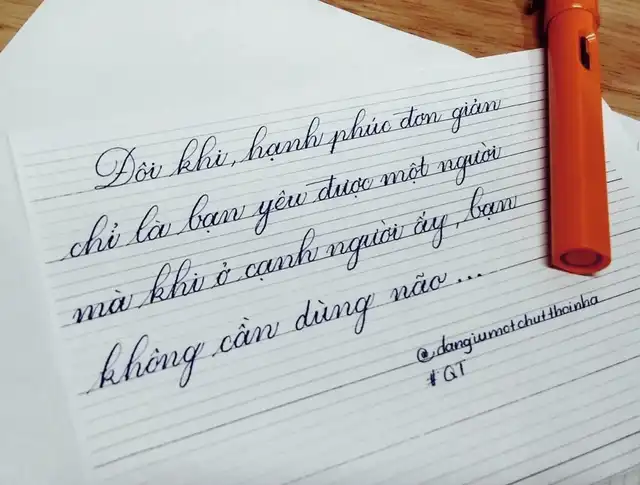 Đôi khi, hạnh phúc đơn giản
chỉ là bạn yêu được một người
mà khi ở cạnh người ấy, bạn
không cần dùng não...
@dangiumotchutthoinha
#QT